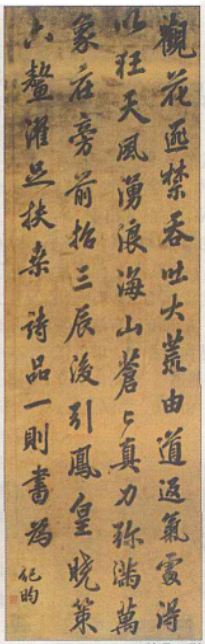 觀花匪禁吞吐大荒由道返氣處得
以狂天風湧浪海山蒼々真力弥滿萬
象在旁前招三辰後引鳳皇曉策
六鼇濯足扶桒 詩品一則書為
紀昀